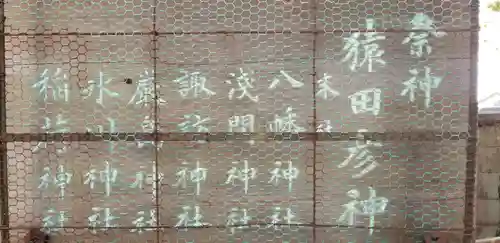 祭神
猿田彦神
末社
八幡神社
浅門神社
諏訪神社
厳島神社
氷川神社
稲荷神社